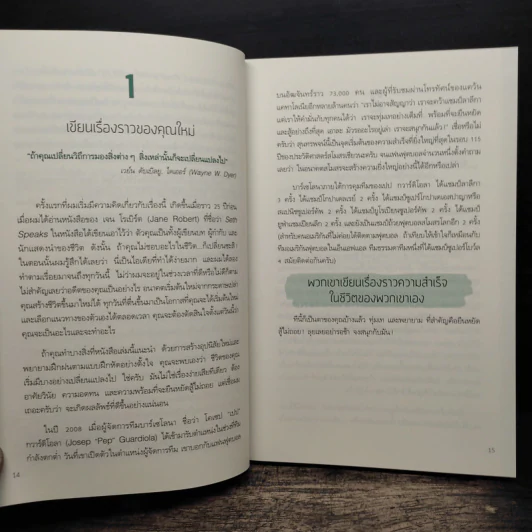 1
เขียนเรื่องราวของคุณใหม่
"ถ้าคุณเปลี่ยนวิธีการมองสิ่งต่าง ๆ สิ่งเหล่านั้นก็จะเปลี่ยนแปลงไป"
เวย์น ดับเบิลยู. ไดเออร์ (Wayne W. Dyer)
ครั้งแรกที่ผมเริ่มมีความคิดเกี่ยวกับเรื่องนี้ เกิดขึ้นเมื่อราว 25 ปีก่อน
เมื่อผมได้อ่านหนังสือของ เจน โรเบิร์ต (Jane Robert) ที่ชื่อว่า Seth
Speaks ในหนังสือได้เขียนเอาไว้ว่า ตัวคุณเป็นทั้งผู้เขียนบท ผู้กำกับ และ
นักแสดงนำของชีวิต ดังนั้น ถ้าคุณไม่ชอบอะไรในชีวิต...ก็เปลี่ยนซะสิ
ในตอนนั้นผมรู้สึกได้เลยว่า นี่เป็นไอเดียที่ทำได้ง่ายมาก และผมได้ลอง
ทำตามเรื่อยมาจนถึงทุกวันนี้ ไม่ว่าผมจะอยู่ในช่วงเวลาที่ดีหรือไม่ดีก็ตาม
ไม่สำคัญเลยว่าอดีตของคุณเป็นอย่างไร อนาคตเริ่มใหม่จากกระดาษเปล่า
คุณสร้างชีวิตขึ้นมาใหม่ได้ ทุกวันที่ตื่นขึ้นมาเป็นโอกาสที่คุณจะได้เริ่มต้นใหม่
และเลือกแนวทางของตัวเองได้ตลอดเวลา คุณจะต้องตัดสินใจตั้งแต่วันนี้ว่า
คุณจะเป็นอะไรและจะทำอะไร
ถ้าคุณทำบางสิ่งที่หนังสือเล่มนี้แนะนำ ด้วยการสร้างอุปนิสัยใหม่และ
พยายามฝึกฝนตามแบบฝึกหัดอย่างตั้งใจ คุณจะพบเองว่า ชีวิตของคุณ
เริ่มมีบางอย่างเปลี่ยนแปลงไป ใช่ครับ มันไม่ใช่เรื่องง่ายเสียทีเดียว ต้อง
อาศัยวินัย ความอดทน และความพร้อมที่จะยืนหยัดสู้ไม่ถอย แต่เชื่อผม
เถอะครับว่า จะเกิดผลลัพธ์ที่ดีขึ้นอย่างแน่นอน
ในปี 2008 เมื่อผู้จัดการทีมบาร์เซโลนา ชื่อว่า โคเซป "เปป"
กวาร์ดิโอลา (Josep "Pep" Guardiola) ได้เข้ามารับตำแหน่งในช่วงที่ทีม
กำลังตกต่ำ วันที่เขาเปิดตัวในตำแหน่งผู้จัดการทีม เขาบอกกับแฟนฟุตบอล
14
บนอัฒจันทร์ราว 73,000 คน และผู้ที่รับชมผ่านโทรทัศน์ของแคว้น
แคทาโลเนียอีกหลายล้านคนว่า "เราไม่อาจสัญญาว่า เราจะคว้าแชมป์ลาลีกา
แต่เราให้คำมั่นกับทุกคนได้ว่า เราจะทุ่มเทอย่างเต็มที่ พร้อมที่จะยืนหยัด
และสู้อย่างถึงที่สุด เอาละ มัวรออะไรอยู่เล่า เราจะสนุกกันแล้ว!" เชื่อหรือไม่
ครับว่า สุนทรพจน์นี้เป็นจุดเริ่มต้นของความสำเร็จที่ยิ่งใหญ่ที่สุดในรอบ 115
ปีของประวัติศาสตร์สโมสรเชียวนะครับ จนแฟนฟุตบอลจำนวนหนึ่งตั้งคำถาม
เลยว่า ในอนาคตสโมสรจะสร้างความสำเร็จยิ่งใหญ่อย่างนี้ได้อีกหรือเปล่า
บาร์เซโลนาภายใต้การคุมทีมของเปป กวาร์ดิโอลา ได้แชมป์ลาลีกา
3 ครั้ง ได้แชมป์โกปาเดลเรย์ 2 ครั้ง ได้แชมป์ซูเปร์โกปาเดเอสปาญาหรือ
สแปนิชซูเปอร์คัพ 2 ครั้ง ได้แชมป์ยูโรเปียนซูเปอร์คัพ 2 ครั้ง ได้แชมป์
ยูฟ่าแชมเปียนลีก 2 ครั้ง และยังได้แชมป์ฟุตบอลสโมสรโลกอีก 2 ครั้ง
(สำหรับคนอเมริกันที่ไม่ค่อยได้ติดตามฟุตบอล ถ้าเทียบให้เข้าใจก็เหมือนกับ
ทีมอเมริกันฟุตบอลในเอ็นเอฟแอล ทีมธรรมดาทีมหนึ่งที่ได้แชมป์ซูเปอร์โบวล์
4 สมัยติดต่อกันครับ)
พวกเขาเขียนเรื่องราวความสำเร็จ
ในชีวิตของพวกเขาเอง
ทีนี้ก็เป็นตาของคุณบ้างแล้ว ทุ่มเท และพยายาม ที่สำคัญคือยืนหยัด
สู้ไม่ถอย! ลุยเลยอย่ารอช้า จงสนุกกับมัน!
15